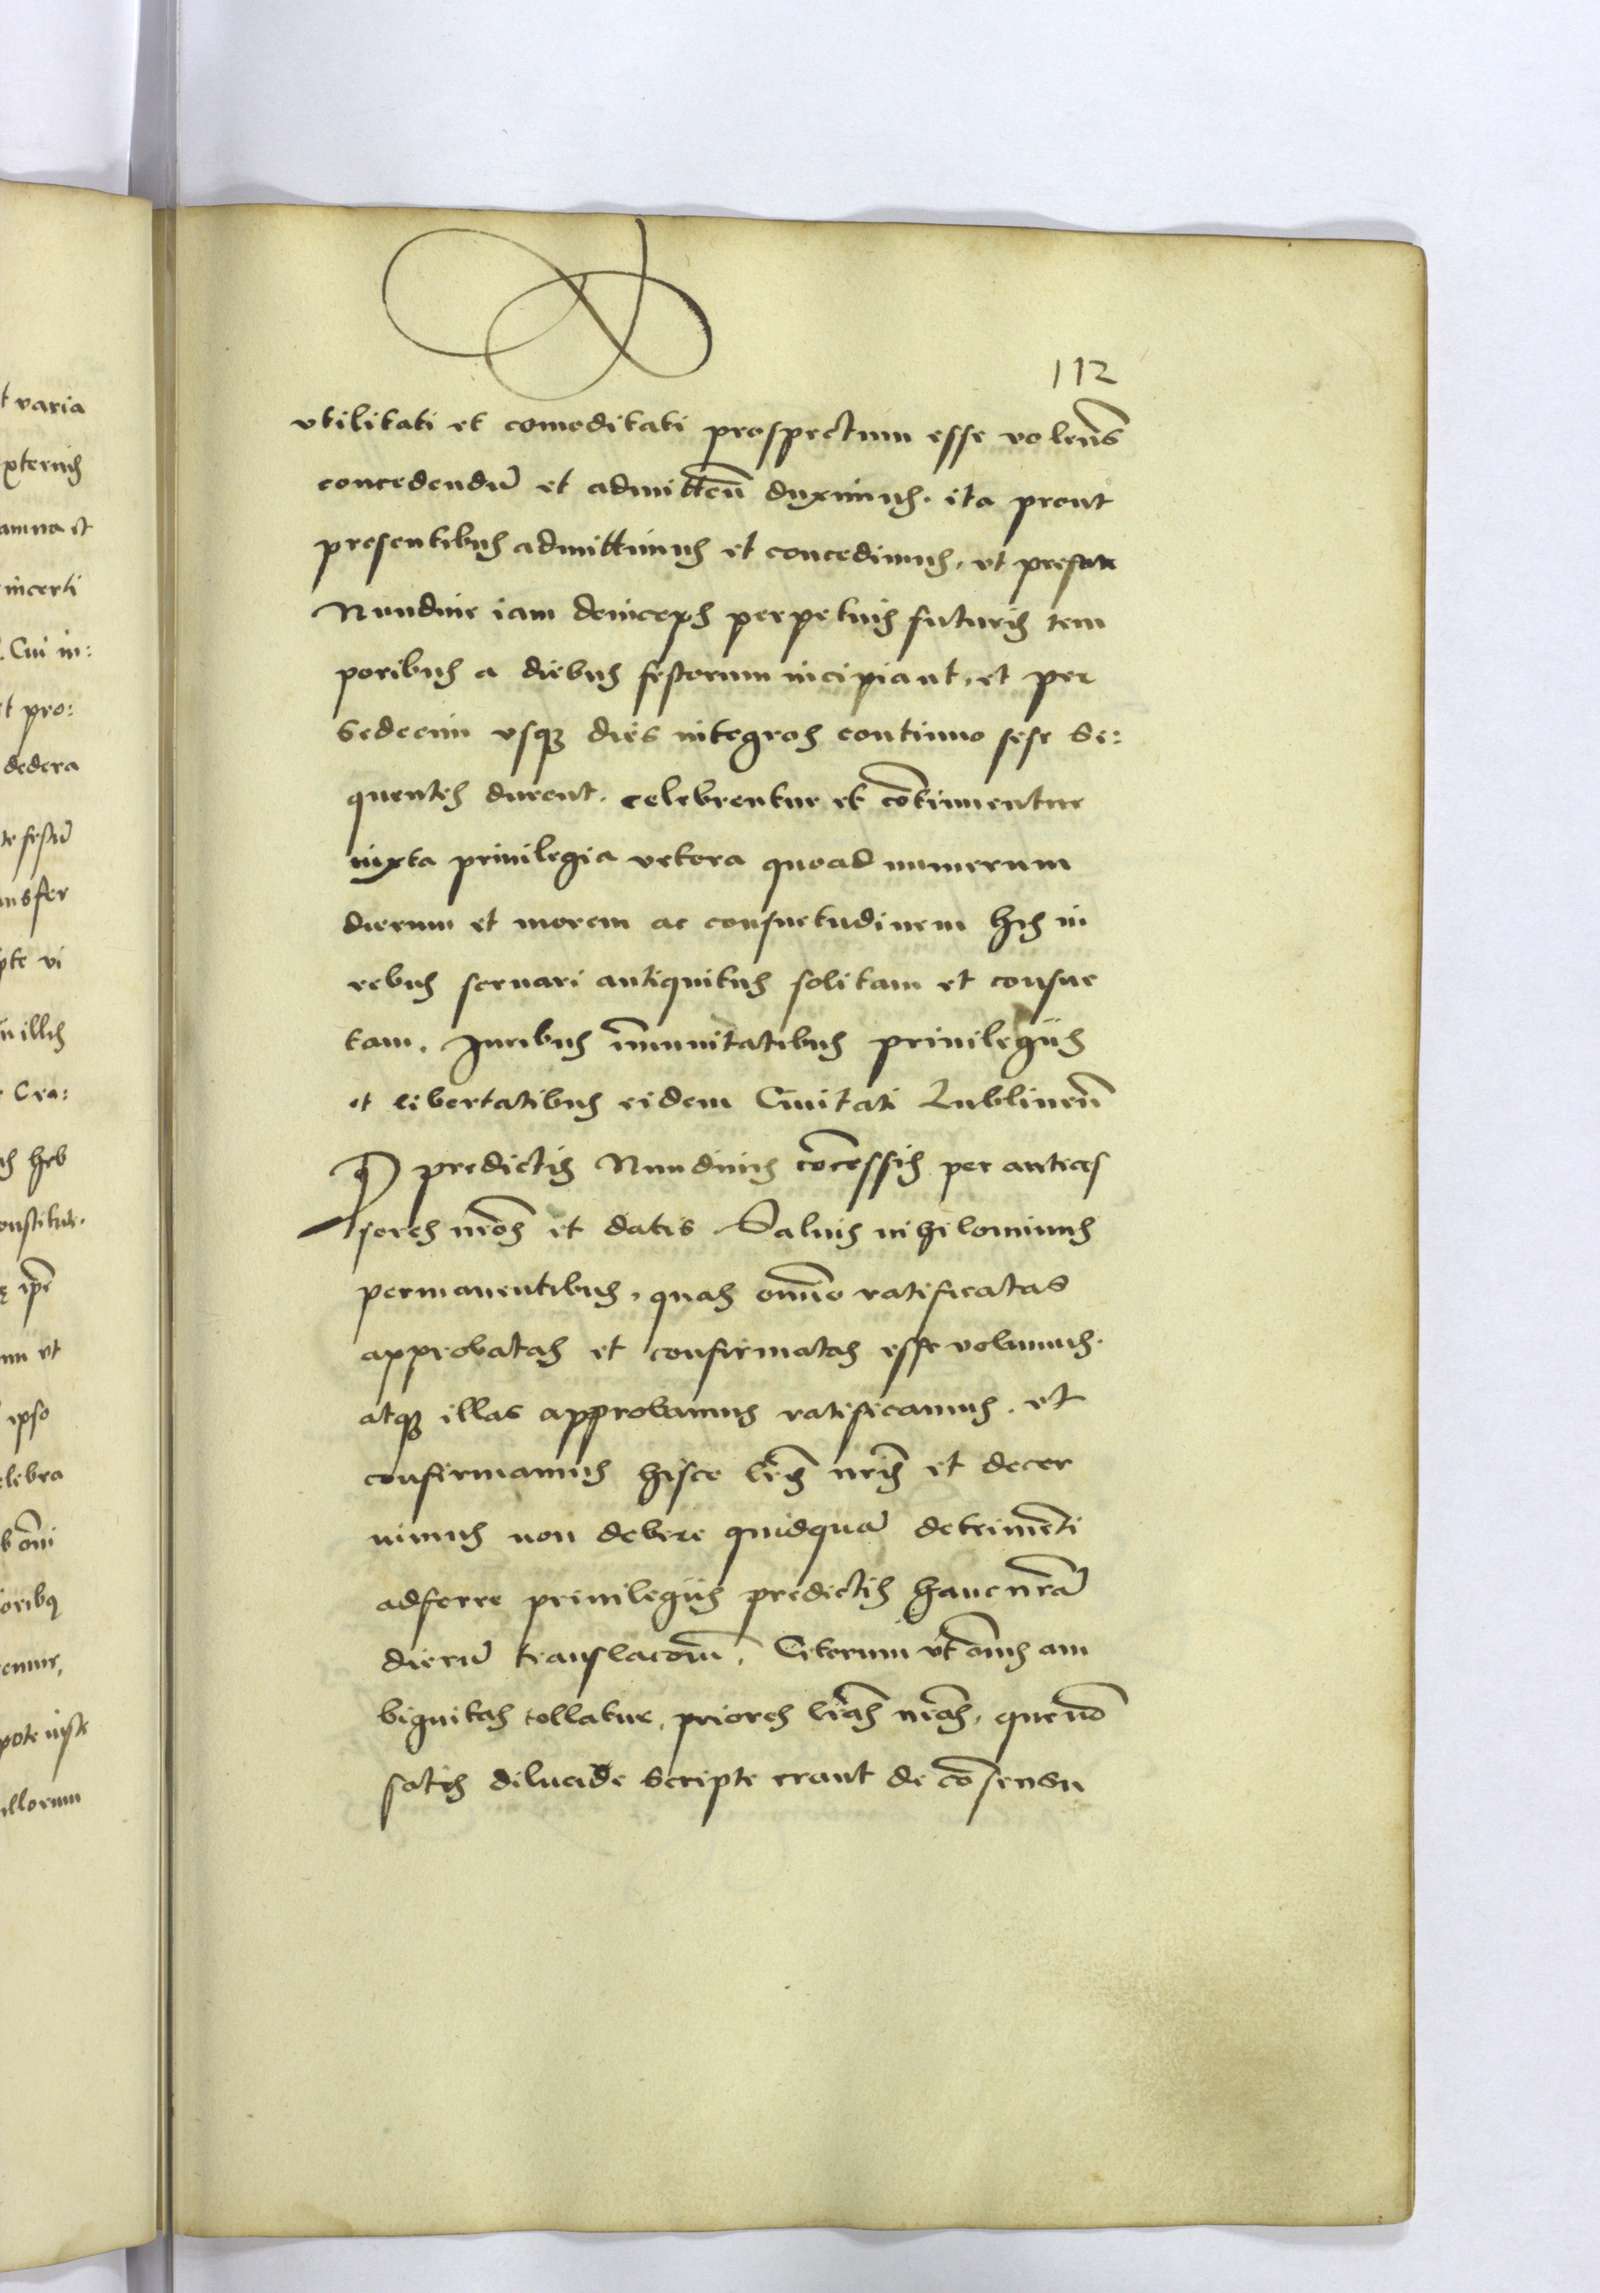 112
vtilitati et comoditati prospectum esse volens
concedendũ et admitteñ duximus. ita prout
presentibus admittimus et concedimus, vt prefate
Nundine iam deinceps perpetuis futuris tem
poribus a diebus festorum incipiant, et per
sedecim vsqȝ dies integros continuo sese se:
quentes durent. celebrentur et cõtinuentur
iuxta priuilegia vetera quoad numerum
dierum et morem ac consuetudinem his in
rebus seruari antiquitus solitam et consue
tam. Iuribus im̃unitatibus priuilegiis
et libertatibus eidem Ciuitati Lublineñ
predictis Nundinis cõcessis per anteces
sores nr̃os et datis. Saluis nihilominus
permanentibus, quas om̃no ratificatas
approbatas et confirmatas esse volumus.
atqȝ illas approbamus ratificamus. et
confirmamus hisce lr̃is nr̃is et decer
nimus non debere quidquã detrimẽti
adferre priuilegiis predictis hanc nr̃ã
dierũ translacõem. Ceterum vt om̃is am
biguitas tollatur, priores lr̃as nr̃as, que nõ
satis dilucide scripte erant de cõsensu
t varia
xternis
amna et
incerti
Cui in:
t pro:
dedera
te festũ
ansfer
pte vi
illis
Cra:
heb
onstitut.
ip̃e
vt
ipso
elebra
om̃i
oribȝ
pote iuste
illorum